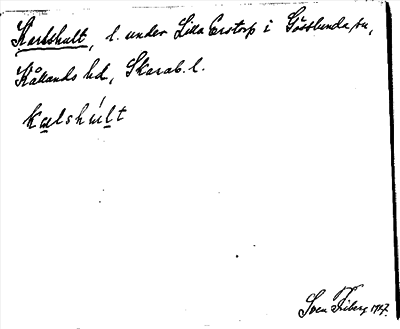 Karlshult, l. under Lilla Carstorp i Gösslunda sn,
Kållands hd, Skarab. l.
kalshúlt
Sven Friberg 1917.